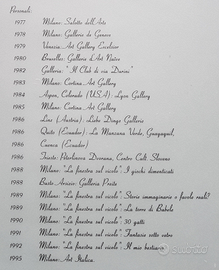 Personali:
1977 Milano: Salotto dell'Arte
1978 Milano: Galleria da Genova
1979 Venezia: Art Gallery Excelsior
1980 Bruxelles: Galleria d'Art Naïve
1982 Galleria: "Il Club di via Dorini"
1983 Milano: Cortina Art Gallery
1984 Aspen, Colorado (U.S.A.): Lyon Gallery
1985 Milano: Cortina Art Gallery
1986 Linz (Austria): Linke Dinge Gallerie
1986 Quito (Ecuador): La Manzana Verde, Guayaquil,
1986 Cuenca (Ecuador)
1986 Trieste: Peterlinova Dvorana, Centro Cult. Sloveno
1988 Milano: "La finestra sul vicolo": Il giardi dimenticati
1988 Busto Arsizio: Galleria Preite
1989 Milano: "La finestra sul vicolo": Storie immaginarie o favole reali?
1989 Milano: "La finestra sul vicolo": La torre di Babele
1990 Milano: "La finestra sul vicolo": 30 gatti
1991 Milano: "La finestra sul vicolo": Fantasia sotto vetro
1992 Milano: "La finestra sul vicolo": Il mio bestiario
1995 Milano: Art Italica
subito